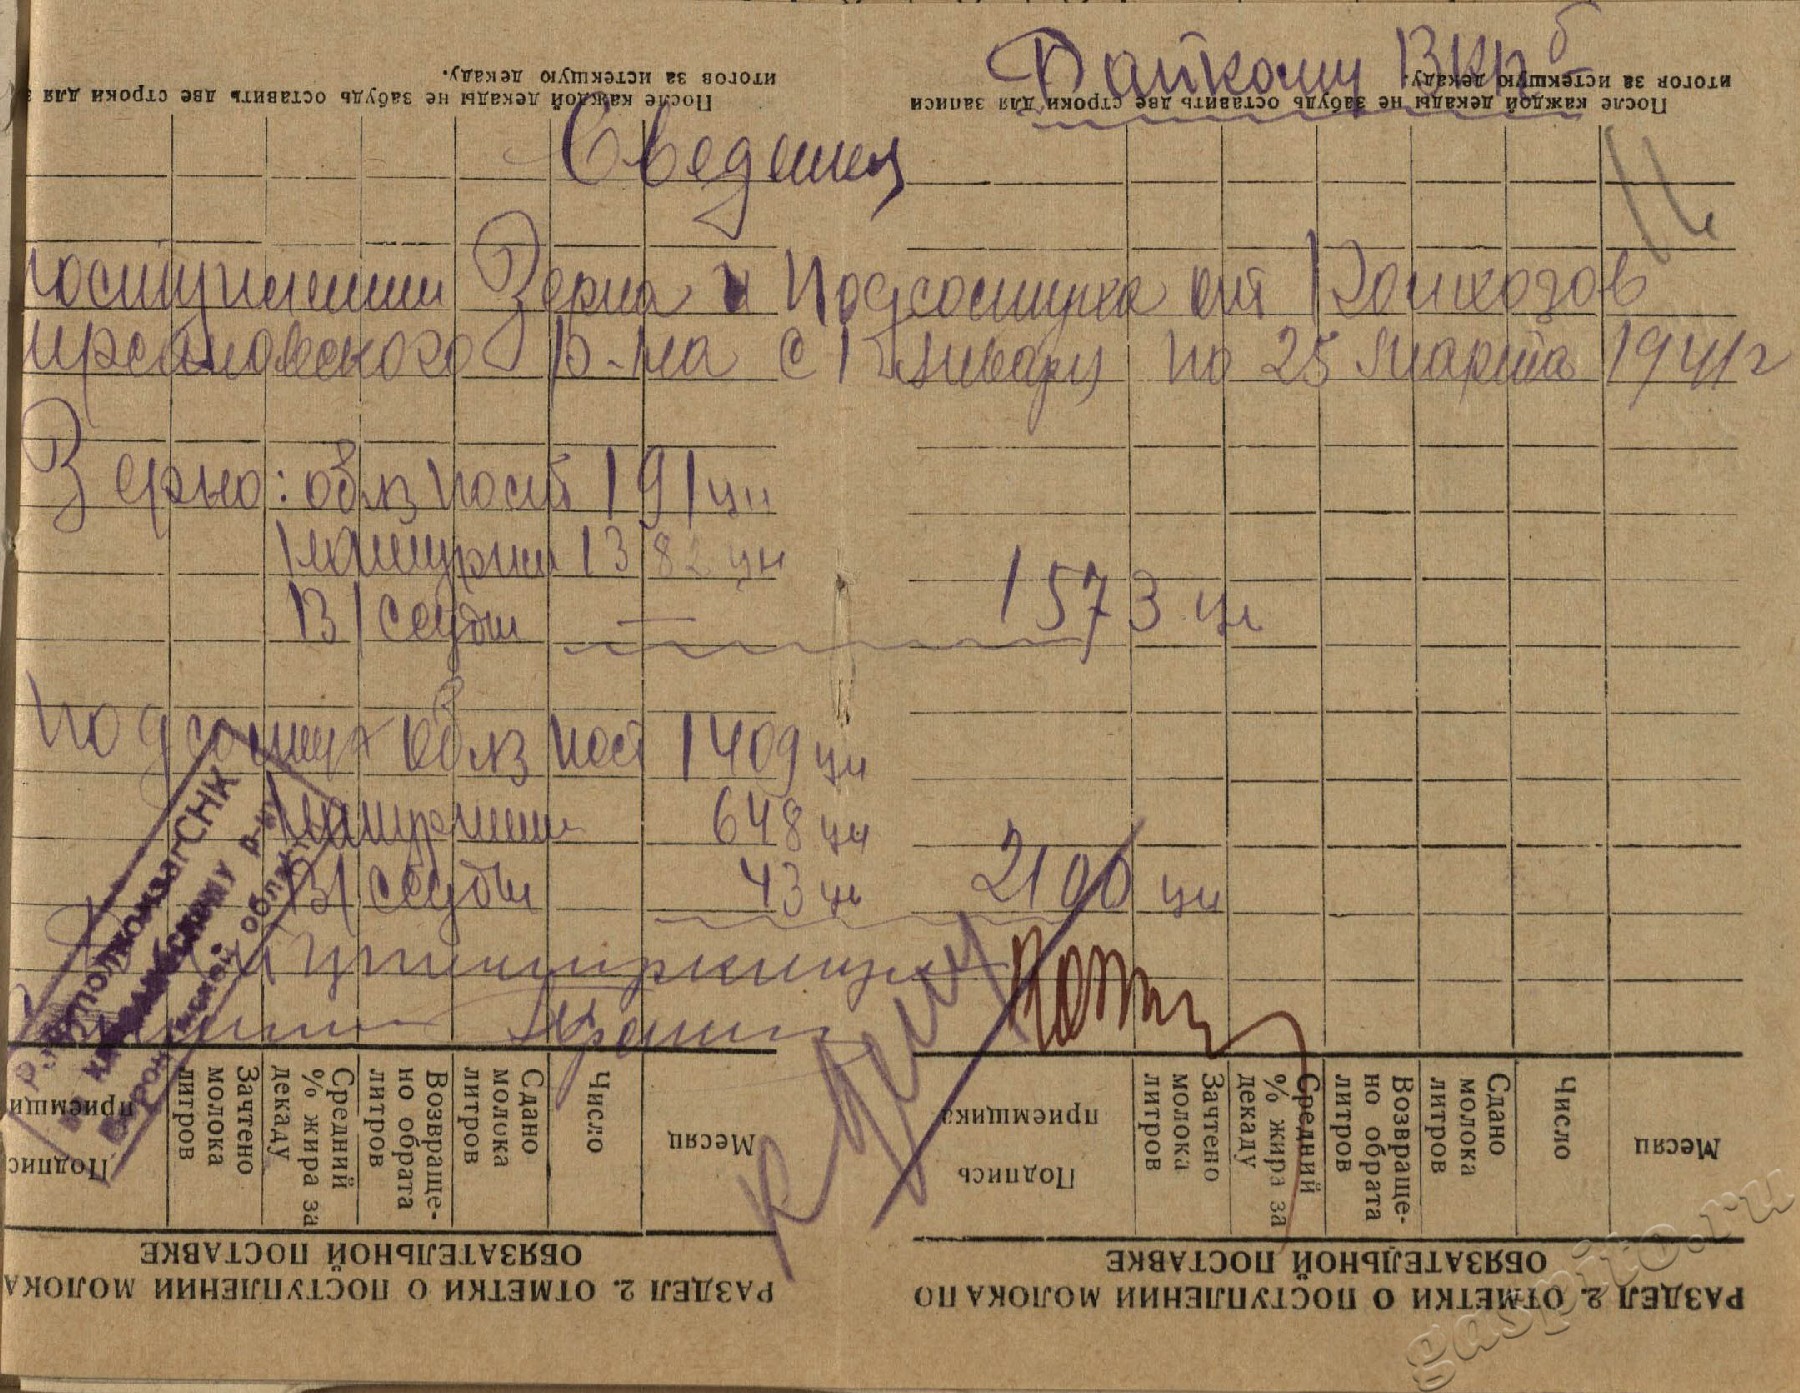 Райкому ВКПб
Сведения
поступлении Зерна и Подсолнуха от Колхозов
ирсановского р-на с 1 Января по 25 Марта 1941 г
Зерно: обяз пост 191 цн
Натурпл 1382 цн
В/ссуды — 1573 цн
Подсолнух обяз пост 1409 цн
Натурплат 648 цн
В/ссуды 43 цн 2100 цн
СНК
р-ну
области
После каждой декады не забудь оставить две строки для
итогов за истекшую декаду.
После каждой декады не забудь оставить две строки для записи
итогов за истекшую декаду.
РАЗДЕЛ 2. ОТМЕТКИ О ПОСТУПЛЕНИИ МОЛОКА
ОБЯЗАТЕЛЬНОЙ ПОСТАВКЕ
Месяц
Число
Сдано молока литров
Возвраще-но обрата литров
Средний % жира за декаду
Зачтено молока литров
Подпис приемщи
РАЗДЕЛ 2. ОТМЕТКИ О ПОСТУПЛЕНИИ МОЛОКА ПО
ОБЯЗАТЕЛЬНОЙ ПОСТАВКЕ
Месяц
Число
Сдано молока литров
Возвраще-но обрата литров
Средний % жира за декаду
Зачтено молока литров
Подпись приемщика
К делу
gaspito.ru